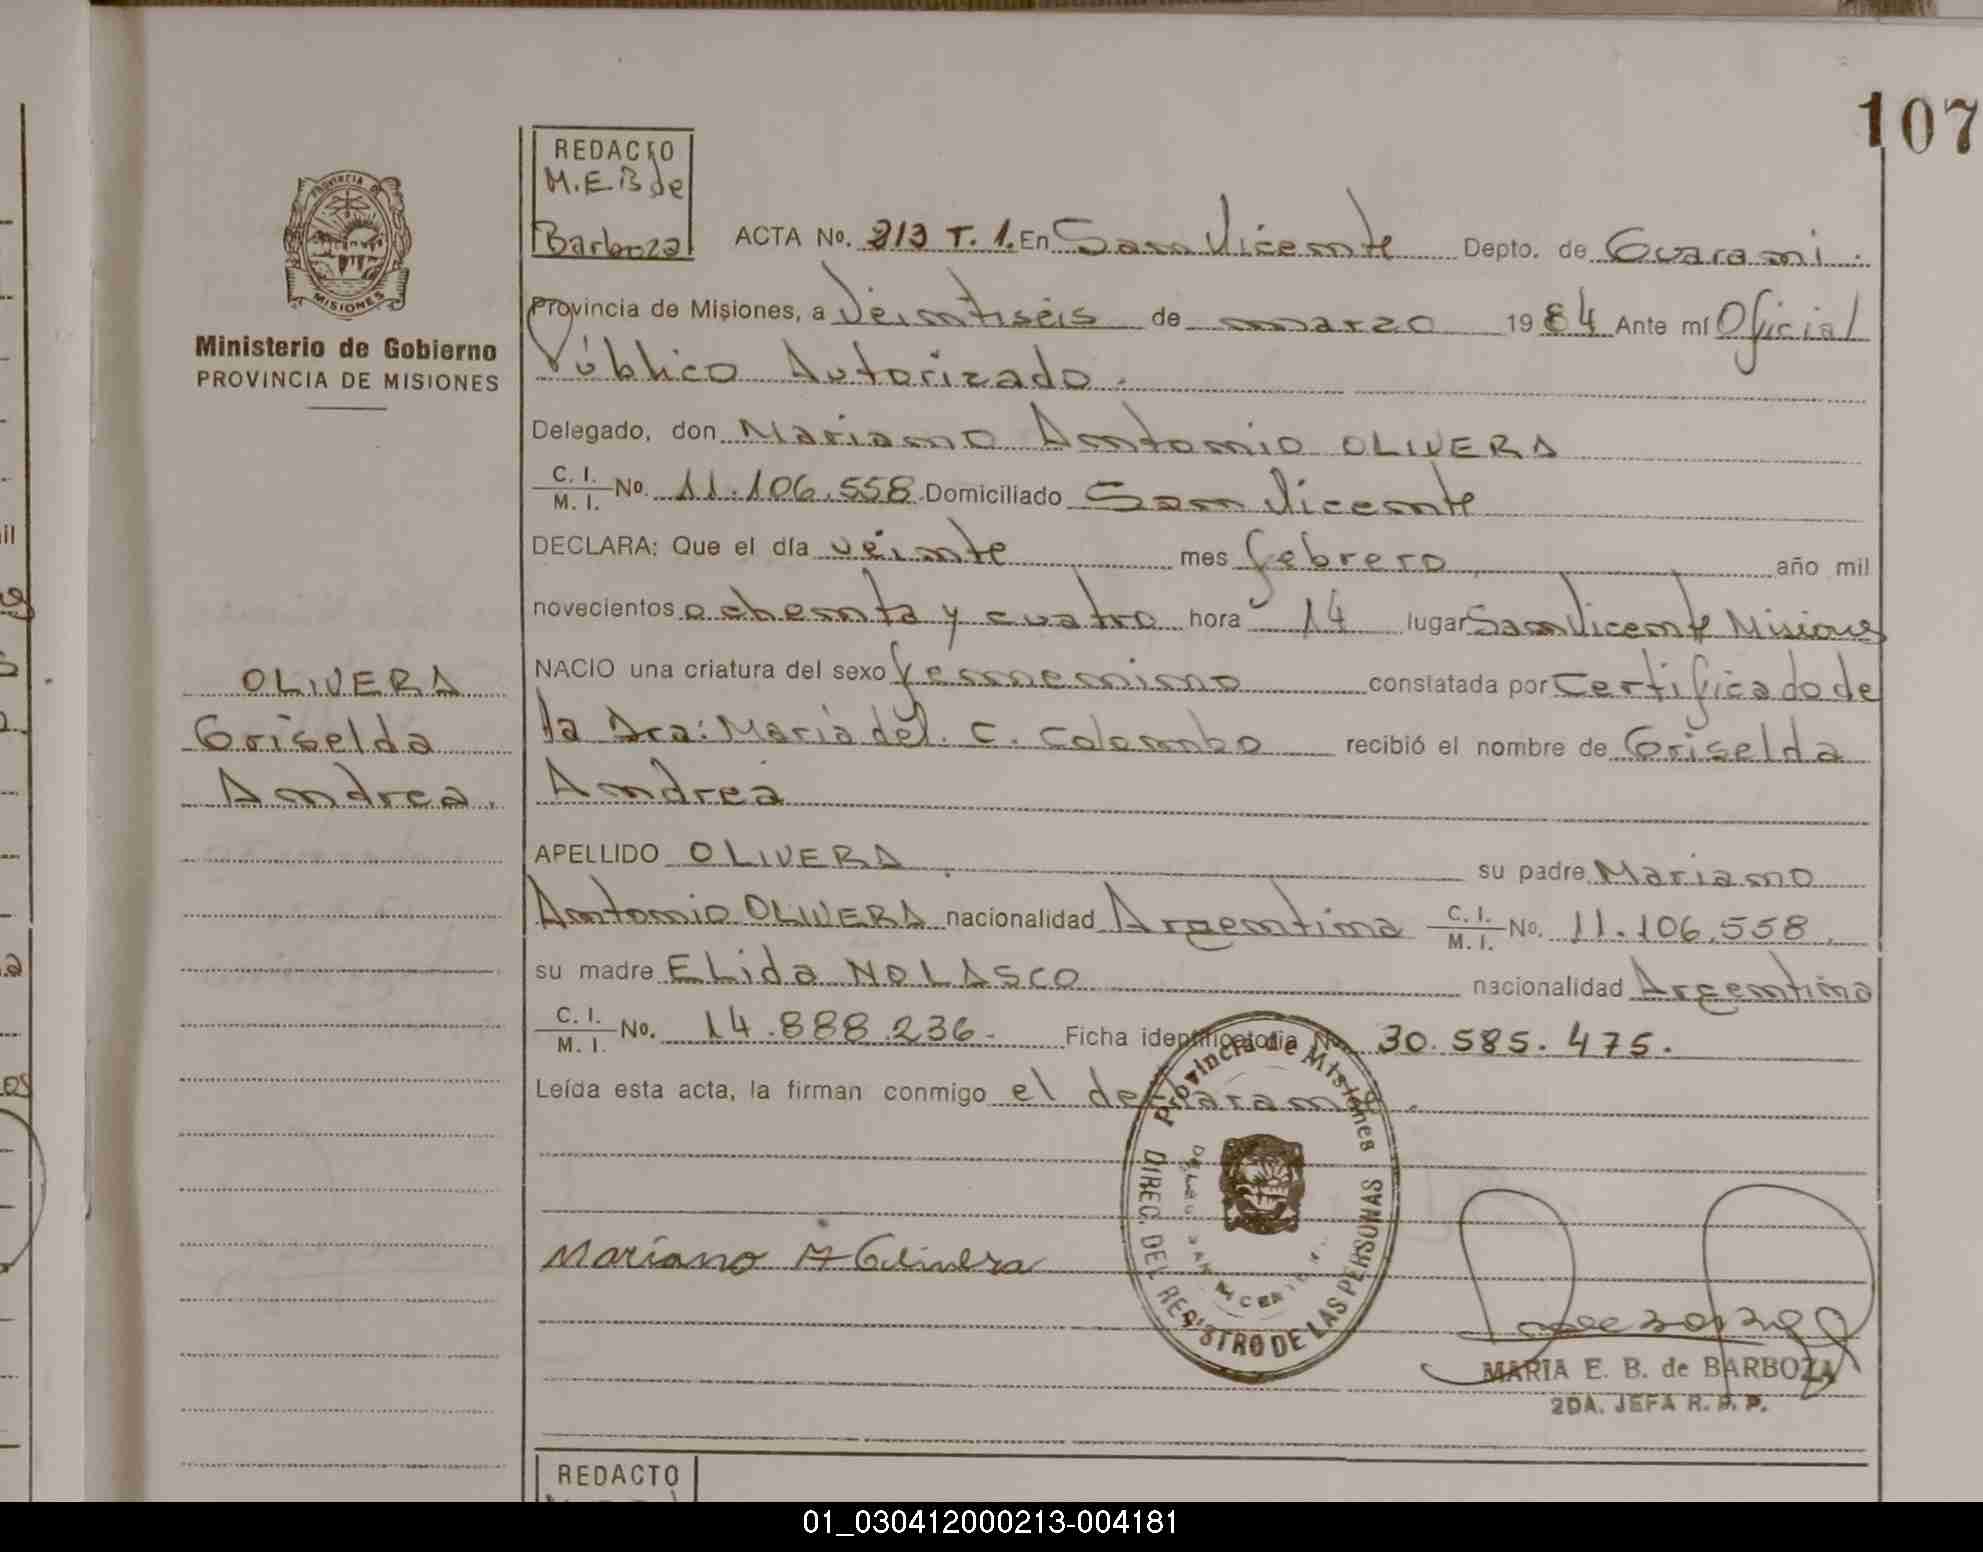 107
REDACTO
M.E.B de
Barboza
PROVINCIA DE
MISIONES
Ministerio de Gobierno
PROVINCIA DE MISIONES
ACTA No. 213 T. 1. En San Vicente Depto. de Guarani.
Provincia de Misiones, a Veintiseis de marzo 1984 Ante mí Oficial
Público Autorizado.
Delegado, don Mariano Antonio OLIVERA
C. I. / M. I. No. 11.106.558 Domiciliado San Vicente
DECLARA: Que el día veinte mes febrero año mil
novecientos ochenta y cuatro hora 14 lugar San Vicente Misiones
NACIO una criatura del sexo femenino constatada por Certificado de
la Dra: María del. C. Colombo recibió el nombre de Griselda
Andrea
OLIVERA
Griselda
Andrea.
APELLIDO OLIVERA su padre Mariano
Antonio OLIVERA nacionalidad Argentina C. I. / M. I. No. 11.106.558.
su madre ELida NOLASCO nacionalidad Argentina
C. I. / M. I. No. 14.888.236- Ficha identificatoria No. 30.585.475.
Leída esta acta, la firman conmigo el declarante.
Provincia de Misiones
DIREC. DEL REGISTRO DE LAS PERSONAS
Mariano A Olivera
MARIA E. B. de BARBOZA
2DA. JEFA R. P. P.
REDACTO
01_030412000213-004181